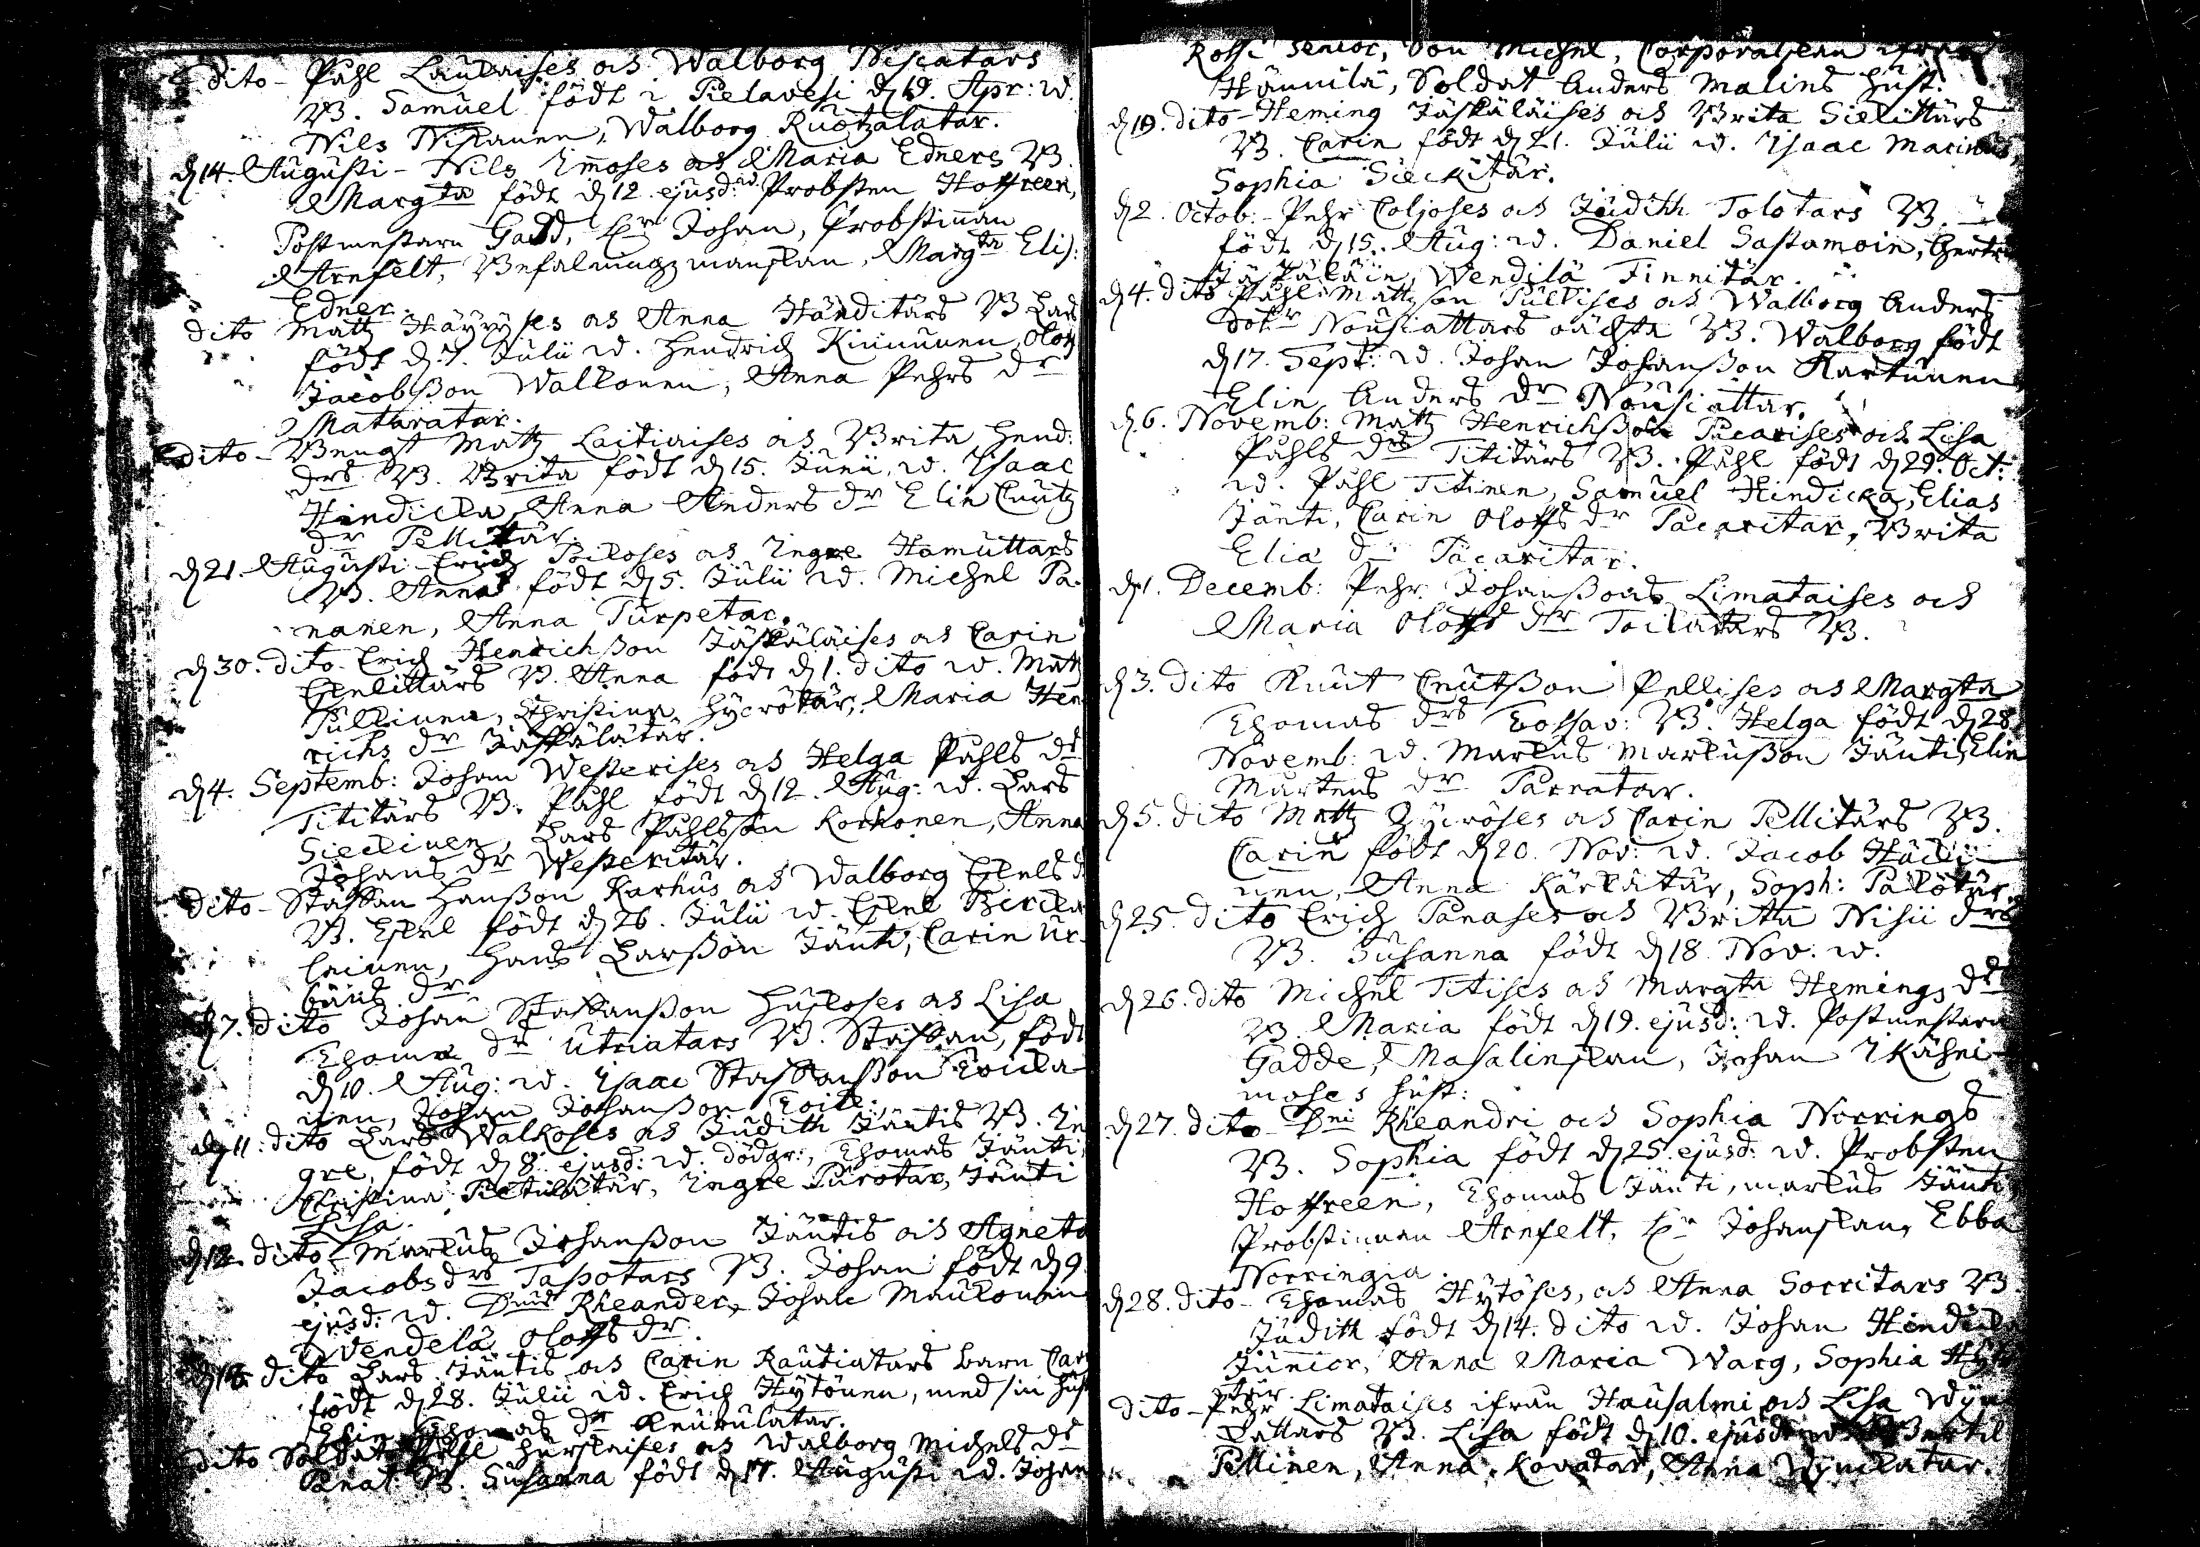 dito - Påhl Laukaises och Walborg Niscatars
B. Samuel född i Pielavesi d 19. Apr: w.
Nils Niskanen, Walborg Ruotzalatar.
d 14. Augusti - Nils Immoses och Maria Edners B.
Margta född d 12. ejusd: w. Probsten Hoffreen,
Postmestarn Gadd, Hr Johan, Probstinnan
Arnfelt, Befalningzmanskan, Margta Elis:
Edner.
dito Matz Häyryses och Anna Händitärs B Lars
född d. 7. Julii w. Hendrich Kinnunen, Oloff
Jacobsson Walkonen, Anna Pehrs dr
Mataratar.
dito - Bengt Matz Laitiaises och Brita Hend:
drs B. Brita född d 15. Junii, w. Isaac
Hindicka, Anna Anders dr Elin Cnutz
dr Pellitär.
d 21. Augusti Erich Poikoses och Ingre Hamuttars
B. Anna född d 5. Julii w. Michel Pa-
nanen, Anna Turpetar.
d 30. dito - Erich Henrichsson Jäskäläises och Carin
B. Anna född d 1. dito w. Matz
Pulkinen, Christina Hycrötär, Maria Hen
richs dr Jäskälätär.
d 4. Septemb: Johan Westerises och Helga Påhls dr
Tititärs B. Påhl född d 12. Aug: w. Lars
Sieckinen, Lars Påhlsson Korhonen, Anna
Johans dr Westeritär.
dito - Staffan Hansson Karhus och Walborg Eskels d
B. Eskel född d 26. Julii w. Eskel
Hans Larsson Jänti, Carin Ur-
bans dr
d 7. dito Johan Staffansson Huskoses och Lisa
Thoma dr Utriatars B. Staffan, född
d 10. Aug: w. Isaac Staffansson
nen, Johan Johansson
d 11. dito Lars Walkoses och Judith Jäntis B. In
gre född d 8. ejusd: w. Thomas Jänti
Christina Pietulätär, Ingre Purotar, Jänti
Lisa.
d 12. dito - Markus Johansson Jäntis och Agneta
Jacobs drs Tapotars B. Johan född d 9
ejusd: w. Dnus Rheander, Johan Maukonen
Wendela Oloffs dr.
dito Lars Jäntis och Carin Rautiatars barn Car
född d 28. Julii w. Erich Hytönen, med sin hust
Elin Thomas dr
dito Soldat Påhl Hurskaises och Walborg Michels dr
B. Susanna född d 17. Augusti w. Johan
Rossi Senior, Von Michel, Corporalskan ifrån
Hännilä, Soldat Anders Malins hust.
d 19. dito - Heming Jäskäläises och Brita Siekittärs
B. Carin född d 21. Julii w. Isaac
Sophia Sieckitär.
d 2. Octob: - Pehr Coljoses och Judith Tolotars B.
född d 15. Aug: w. Daniel Sastamoin, Gertru
Jäskäläin, Wendilä Finnitär.
d 4. dito Påhl Mattsson Pulkises och Walborg Anders
dotr Nousiattars B. Walborg född
d 17. Sept: w. Johan Johansson Kartunen
Elin Anders dr Nousiattar.
d 6. Novemb: Matz Henrichsson Pacarises och Lisa
Påhls drs Tititärs B. Påhl född d 29. Oct:
w. Påhl Titinen, Samuel Hindicka, Elias
Jänti, Carin Oloffs dr Pacaritar, Brita
Elia dr Pacaritar.
d 1. Decemb: Pehr Johanssons Limataises och
Maria Oloffs dr B.
d 3. dito Knut Cnutsson Pellises och Margta
Thomas drs Tossav: B. Helga född d 28
Novemb: w. Markus Markusson Jänti, Elin
Mårtens dr Parratar.
d 5. dito Matz och Carin Pellitärs B.
Carin född d 20. Nov: w. Jacob
nen, Anna Kärkätär, Soph: Pakötär.
d 25. dito Erich Panases och Britta Nisii drs
B. Susanna född d 18. Nov. w.
d 26. dito Michel Titises och Margta Hemings dr
B. Maria född d 19. ejusd: w. Postmestarn
Gadde, Masalinskan, Johan Ikähei-
moses hust:
d 27. dito - Dni Rheandri och Sophia Norrings
B. Sophia född d 25. ejusd: w. Probsten
Hoffreen, Thomas Jänti, Markus Jänti
Probstinnan Arnfelt, Hr Johanskan, Ebba
Norringia.
d 28. dito - Thomas Hytöses, och Anna Sorritars B
Judith född d 14. dito w. Johan Hindicka
Junior, Anna Maria Warg, Sophia Hytö
tär.
dito - Pehr Limataises ifrån Hausalmi och Lisa Wyn
kattars B. Lisa född d 10. ejusd: w. Bertil
Pellinen, Anna Kovatar, Anna Wynkatar.